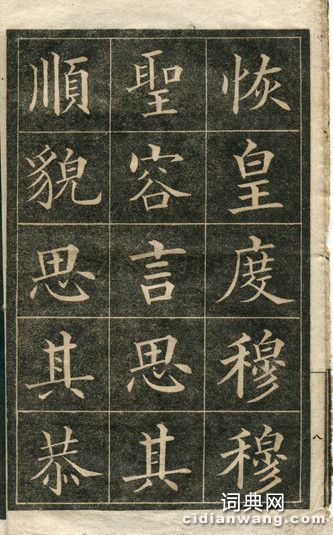 恢皇度穆穆
聖容言思其
順貌思其恭
八
词典网
cidianwang.com